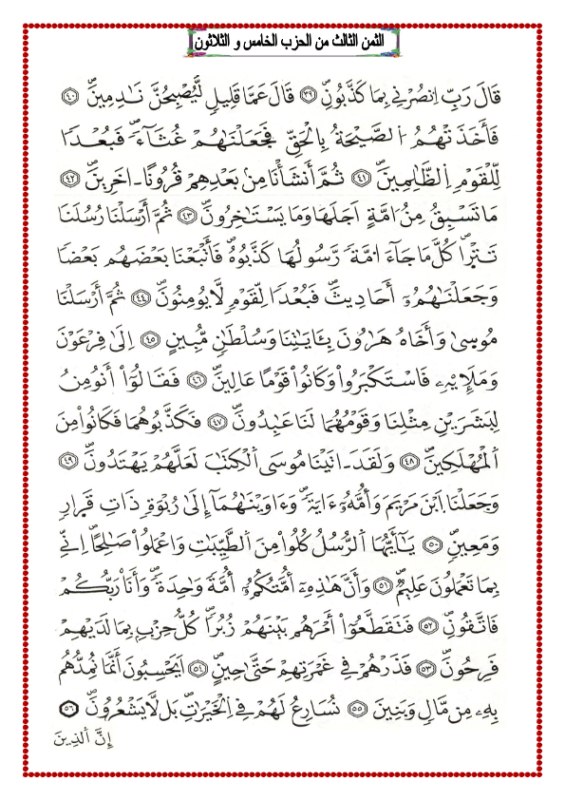 الثمن الثالث من الحزب الخامس و الثلاثون
قَالَ رَبِّ اِنصُرْنِے بِمَا كَذَّبُونِۖ ٣٩ قَالَ عَمَّا قَلِيلٖ لَّيُصْبِحُنَّ نَٰدِمِينَۖ ٤٠
فَأَخَذَتْهُمُ اُلصَّيْحَةُ بِالْحَقِّ فَجَعَلْنَٰهُمْ غُثَآءٗۖ فَبُعْداٗ
لِّلْقَوْمِ اِلظَّٰلِمِينَۖ ٤١ ثُمَّ أَنشَأْنَا مِنۢ بَعْدِهِمْ قُرُوناً ـ اخَرِينَۖ ٤٢
مَا تَسْبِقُ مِنُ امَّةٍ اَجَلَهَا وَمَا يَسْتَٰخِرُونَۖ ٤٣ ثُمَّ أَرْسَلْنَا رُسُلَنَا
تَتْرَاۖ كُلَّ مَا جَآءَ امَّةٗ رَّسُولُهَا كَذَّبُوهُۖ فَأَتْبَعْنَا بَعْضَهُم بَعْضاٗ
وَجَعَلْنَٰهُمُۥٓ أَحَادِيثَۖ فَبُعْداٗ لِّقَوْمٖ لَّا يُومِنُونَۖ ٤٤ ثُمَّ أَرْسَلْنَا
مُوسىٰ وَأَخَاهُ هَٰرُونَ بِـَٔايَٰتِنَا وَسُلْطَٰنٖ مُّبِينٍ ٤٥ اِلَىٰ فِرْعَوْنَ
وَمَلَإِيْهِۦ فَاسْتَكْبَرُواْ وَكَانُواْ قَوْماً عَالِينَۖ ٤٦ فَقَالُوٓاْ أَنُومِنُ
لِبَشَرَيْنِ مِثْلِنَا وَقَوْمُهُمَا لَنَا عَٰبِدُونَۖ ٤٧ فَكَذَّبُوهُمَا فَكَانُواْ مِنَ
اَلْمُهْلَكِينَۖ ٤٨ وَلَقَدَ ـ اتَيْنَا مُوسَى اَلْكِتَٰبَ لَعَلَّهُمْ يَهْتَدُونَۖ ٤٩
وَجَعَلْنَا اَبْنَ مَرْيَمَ وَأُمَّهُۥٓ ءَايَةٗۖ وَءَاوَيْنَٰهُمَآ إِلَىٰ رُبْوَةٖ ذَاتِ قَرارٖ
وَمَعِينٖۖ ٥٠ يَٰٓأَيُّهَا اَلرُّسُلُ كُلُواْ مِنَ اَلطَّيِّبَٰتِ وَاعْمَلُواْ صَٰلِحاًۖ اِنِّے
بِمَا تَعْمَلُونَ عَلِيمٞۖ ٥١ وَأَنَّ هَٰذِهِۦٓ أُمَّتُكُمُۥٓ أُمَّةٗ وَٰحِدَةٗۖ وَأَنَا رَبُّكُمْ
فَاتَّقُونِۖ ٥٢ فَتَقَطَّعُوٓاْ أَمْرَهُم بَيْنَهُمْ زُبُراٗۖ كُلُّ حِزْبِۢ بِمَا لَدَيْهِمْ
فَرِحُونَۖ ٥٣ فَذَرْهُمْ فِے غَمْرَتِهِمْ حَتَّىٰ حِينٍۖ ٥٤ اَيَحْسِبُونَ أَنَّمَا نُمِدُّهُم
بِهِۦ مِن مَّالٖ وَبَنِينَ ٥٥ نُسَارِعُ لَهُمْ فِے اِلْخَيْرَٰتِۖ بَل لَّا يَشْعُرُونَۖ ٥٦
إِنَّ اَلذِينَ